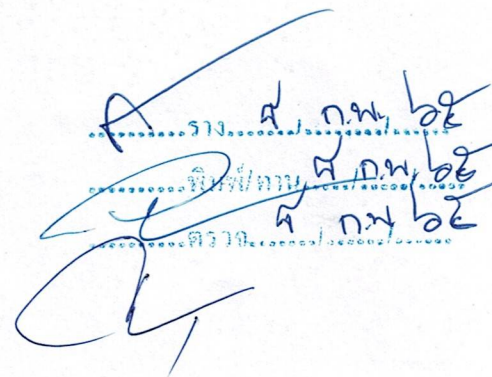 ร่าง ๘ ก.พ. ๖๕
พิมพ์/ทาน ๘ ก.พ. ๖๕
ตรวจ ๘ ก.พ. ๖๕